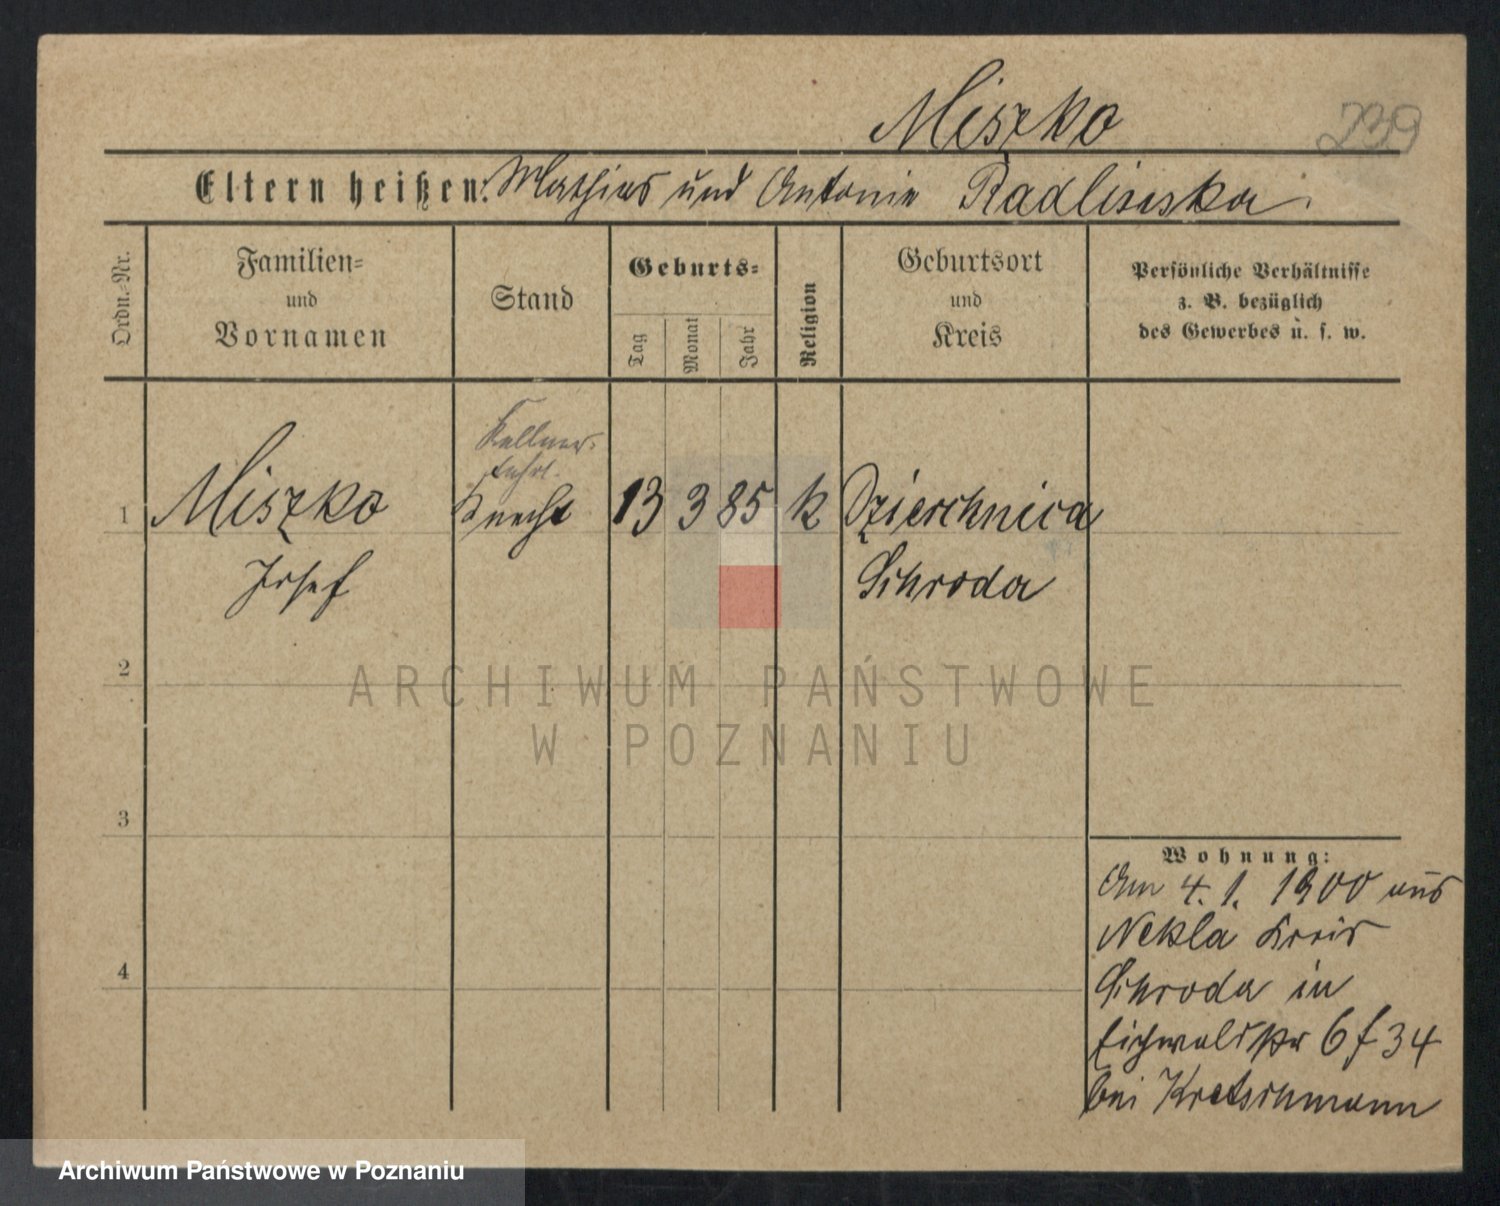 Miszko
239
Eltern heißen: Mathias und Antonie Radlinska.
Ordn.-Nr.
Familien=
und
Vornamen
Stand
Geburts=
Tag
Monat
Jahr
Religion
Geburtsort
und
Kreis
Persönliche Verhältnisse
z. B. bezüglich
des Gewerbes u. s. w.
Kellner-
lehrl.
1 Miszko Knecht 13 3 85 k Dzierchnica
Josef Schroda
2
ARCHIWUM PAŃSTWOWE
W POZNANIU
3
4
Wohnung:
Am 4. 1. 1900 aus
Nekla Kreis
Schroda in
Eichwaldstr 6 f 34
bei Kretschmann
Archiwum Państwowe w Poznaniu